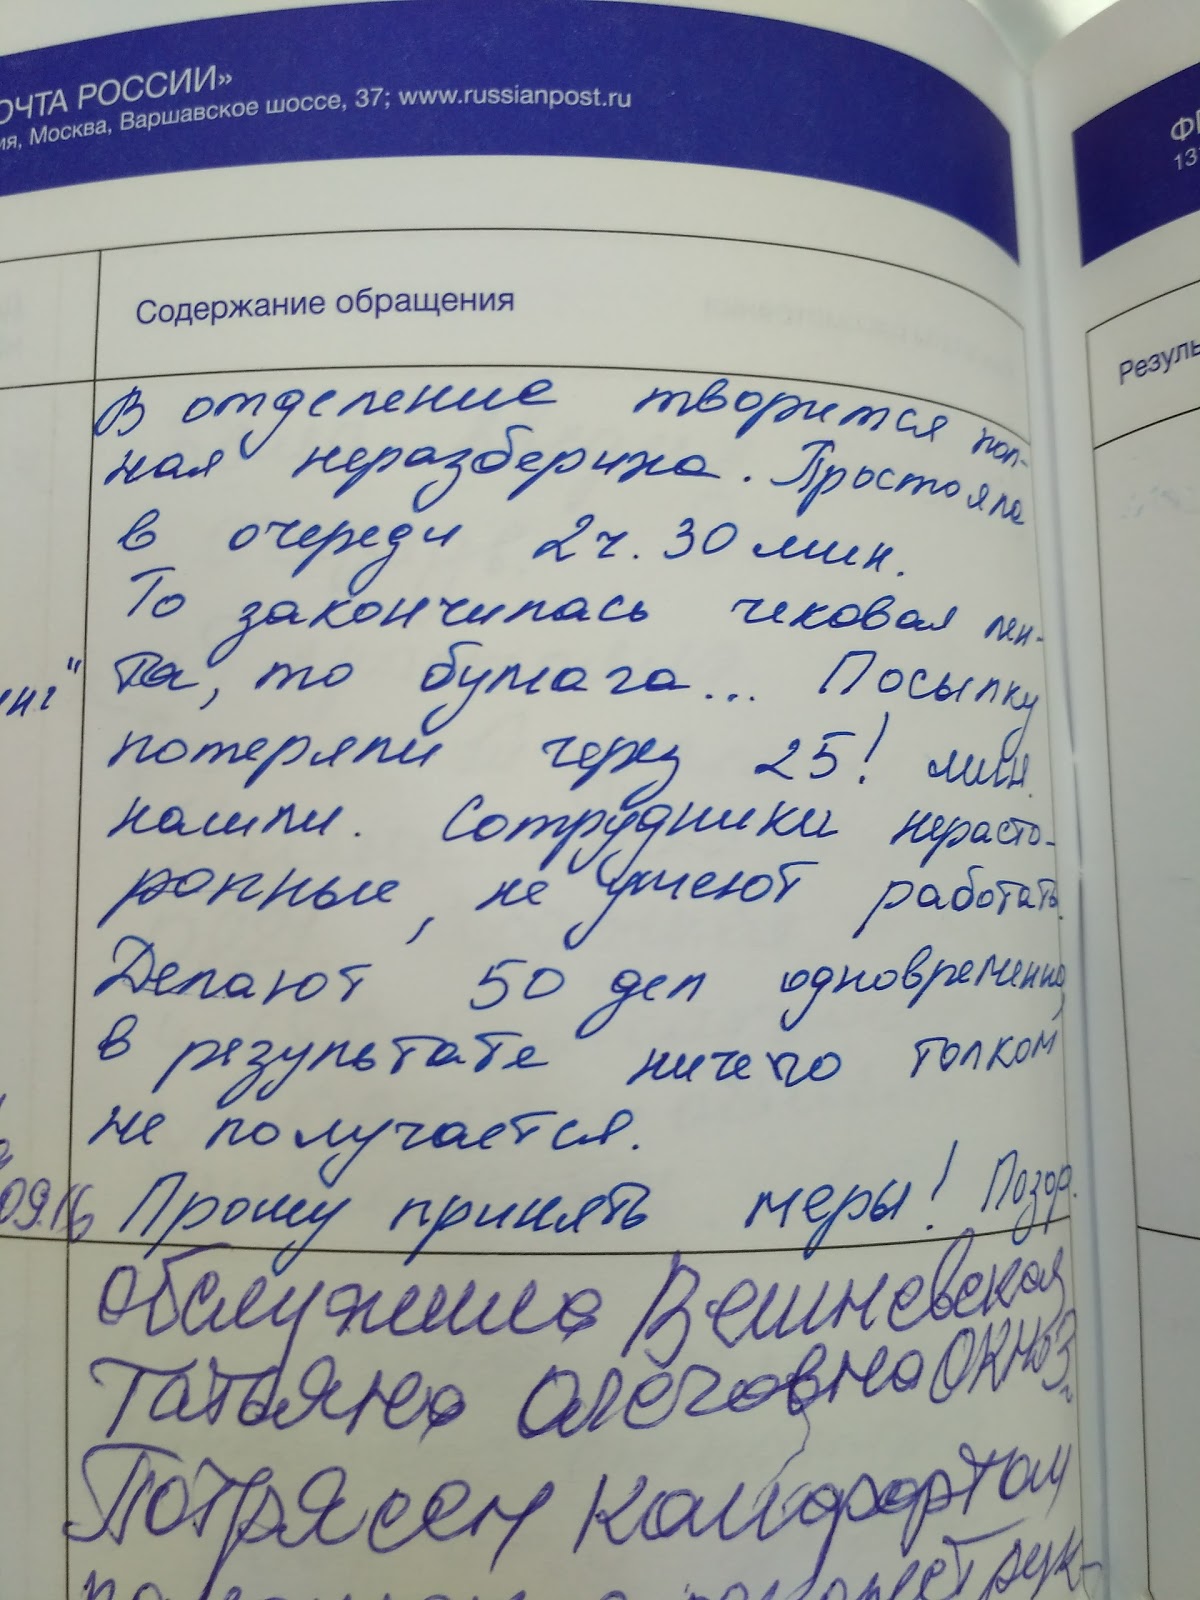 ОЧТА РОССИИ»
ия, Москва, Варшавское шоссе, 37; www.russianpost.ru
Содержание обращения
В отделение творится пол-
ная неразбериха. Простояла
в очереди 2ч. 30 мин.
То закончилась чековая лен-
та, то бумага... Посылку
потеряли через 25! мин.
нашли. Сотрудники нерасто-
ропные, не умеют работать.
Делают 50 дел одновременно,
в результате ничего толком
не получается.
Прошу принять меры! Позор.
обслужила Вешневская
Татьяна Олеговна окно3
Потрясен комфортом
инг"
09.16
ФГ
13
Резуль